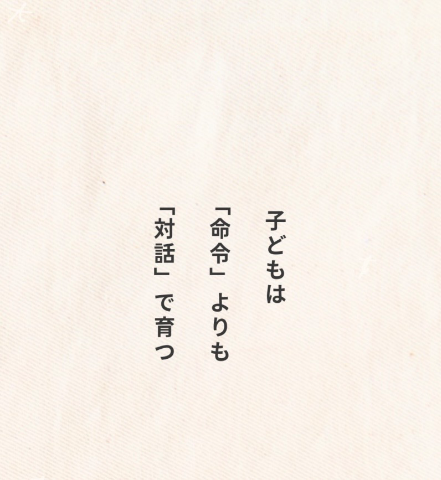 子どもは
「命令」よりも
「対話」で育つ